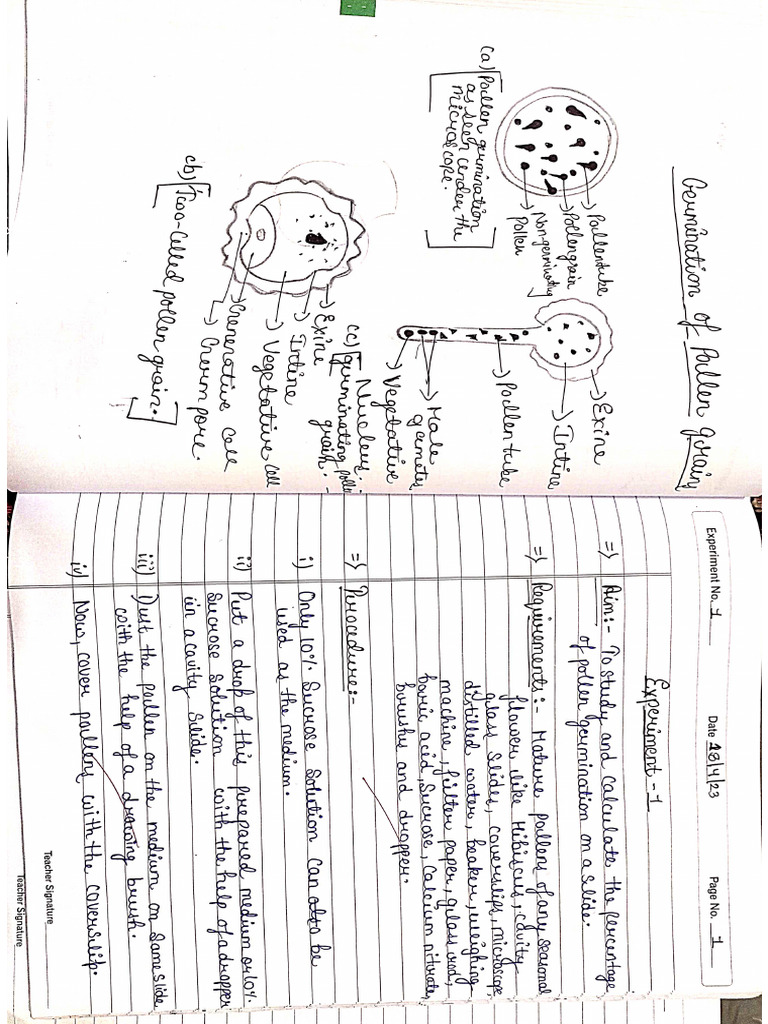 Germination of Pollen grain
→ Pollentube
→ Pollengrain
→ Non-germinating
pollen
(a) Pollen germination
as seen under the
microscope.
→ Exine
→ Intine
→ Pollentube
→ Male
gametes
→ Vegetative
Nucleus
(c) germinating pollen
grain.
→ Exine
→ Intine
→ Vegetative cell
→ Generative cell
→ Germ pore.
(b) Two-celled pollen grain.
Experiment No. 1
Date 18/4/23
Page No. 1
Experiment - 1
⇒ Aim:- To study and calculate the percentage
of pollen germination on a slide.
⇒ Requirements:- Mature pollens of any seasonal
flower, like Hibiscus, cavity
glass slides, coverslips, microscope,
distilled water, beaker, weighing
machine, filter paper, glass rod,
boric acid, sucrose, Calcium nitrate,
brushes and dropper.
⇒ Procedure:-
i) Only 10% Sucrose Solution can also be
used as the medium.
ii) Put a drop of this prepared medium or 10%
Sucrose Solution with the help of a dropper
in a cavity slide.
iii) Dust the pollen on the medium on same slide
with the help of a drawing brush.
iv) Now, cover pollens with the coverslip.
Teacher Signature
Teacher Signature